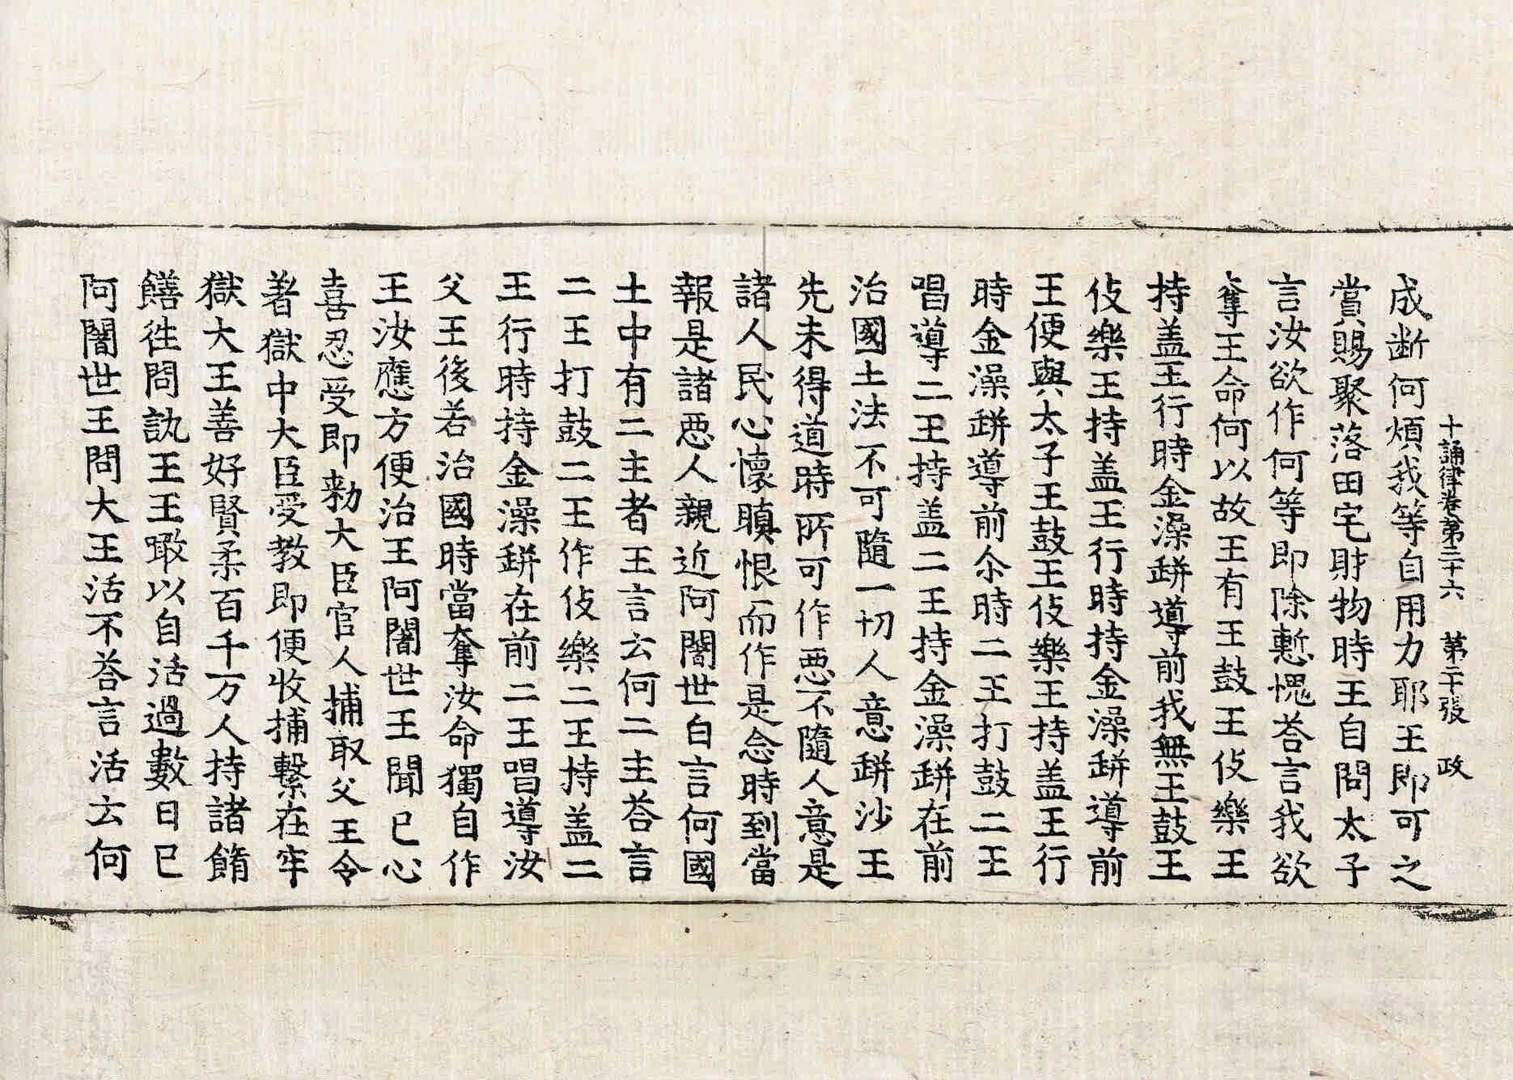 十誦律卷第三十六　第二十張　政
成斷何煩我等自用力耶王即可之
賞賜聚落田宅財物時王自問太子
言汝欲作何等即除慙愧荅言我欲
奪王命何以故王有王鼓王伎樂王
持盖王行時金澡缾導前我無王鼓王
伎樂王持盖王行時持金澡缾導前
王便與太子王鼓王伎樂王持盖王行
時金澡缾導前尒時二王打鼓二王
唱導二王持盖二王持金澡缾在前
治國土法不可隨一切人意缾沙王
先未得道時所可作惡不隨人意是
諸人民心懷瞋恨而作是念時到當
報是諸惡人親近阿闍世白言何國
土中有二主者王言云何二主荅言
二王打鼓二王作伎樂二王持盖二
王行時持金澡缾在前二王唱導汝
父王後若治國時當奪汝命獨自作
王汝應方便治王阿闍世王聞已心
喜忍受即勑大臣官人捕取父王令
著獄中大臣受教即便收捕繫在牢
獄大王善好賢柔百千万人持諸餚
饍徃問訊王王噉以自活過數日已
阿闍世王問大王活不荅言活云何